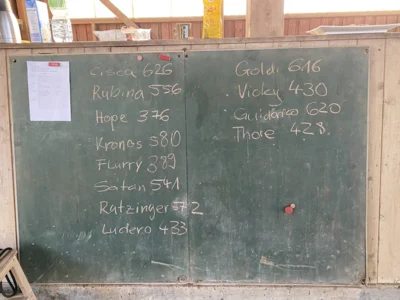 Cisca 626
Rubina 556
Hope 376
Kronos 580
Flurry 389
Satan 541
Ratzinger 572
Ludero 433
Goldi 616
Vicky 430
620
Thore 428